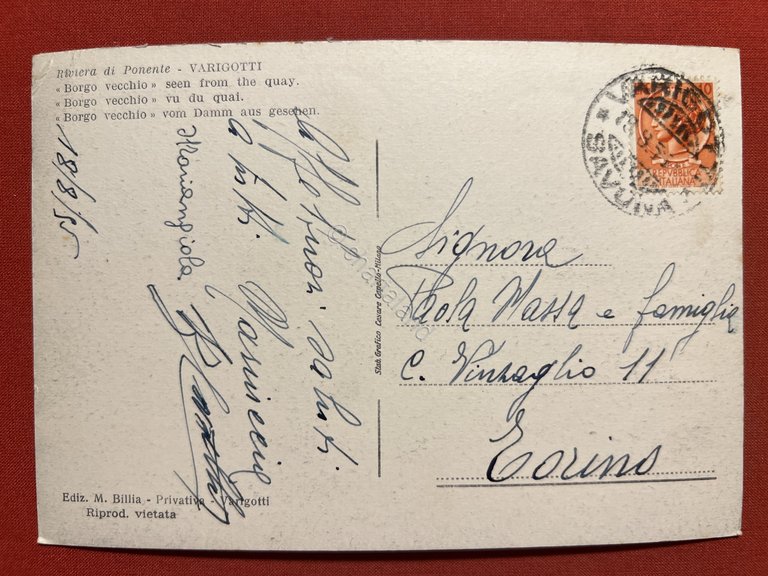 Riviera di Ponente - VARIGOTTI
« Borgo vecchio » seen from the quay.
« Borgo vecchio » vu du quai.
« Borgo vecchio » vom Damm aus gesehen.
18/8/55
Affettuosi saluti
a tutti.
Mariangiola
Stab. Grafico Cesare Capello - Milano
Signora
Paola Massa e famiglia
C. Vinzaglio 11
Torino
10
REPUBBLICA
ITALIANA
VARIGOTTI
SAVONA
Ediz. M. Billia - Privativa - Varigotti
Riprod. vietata